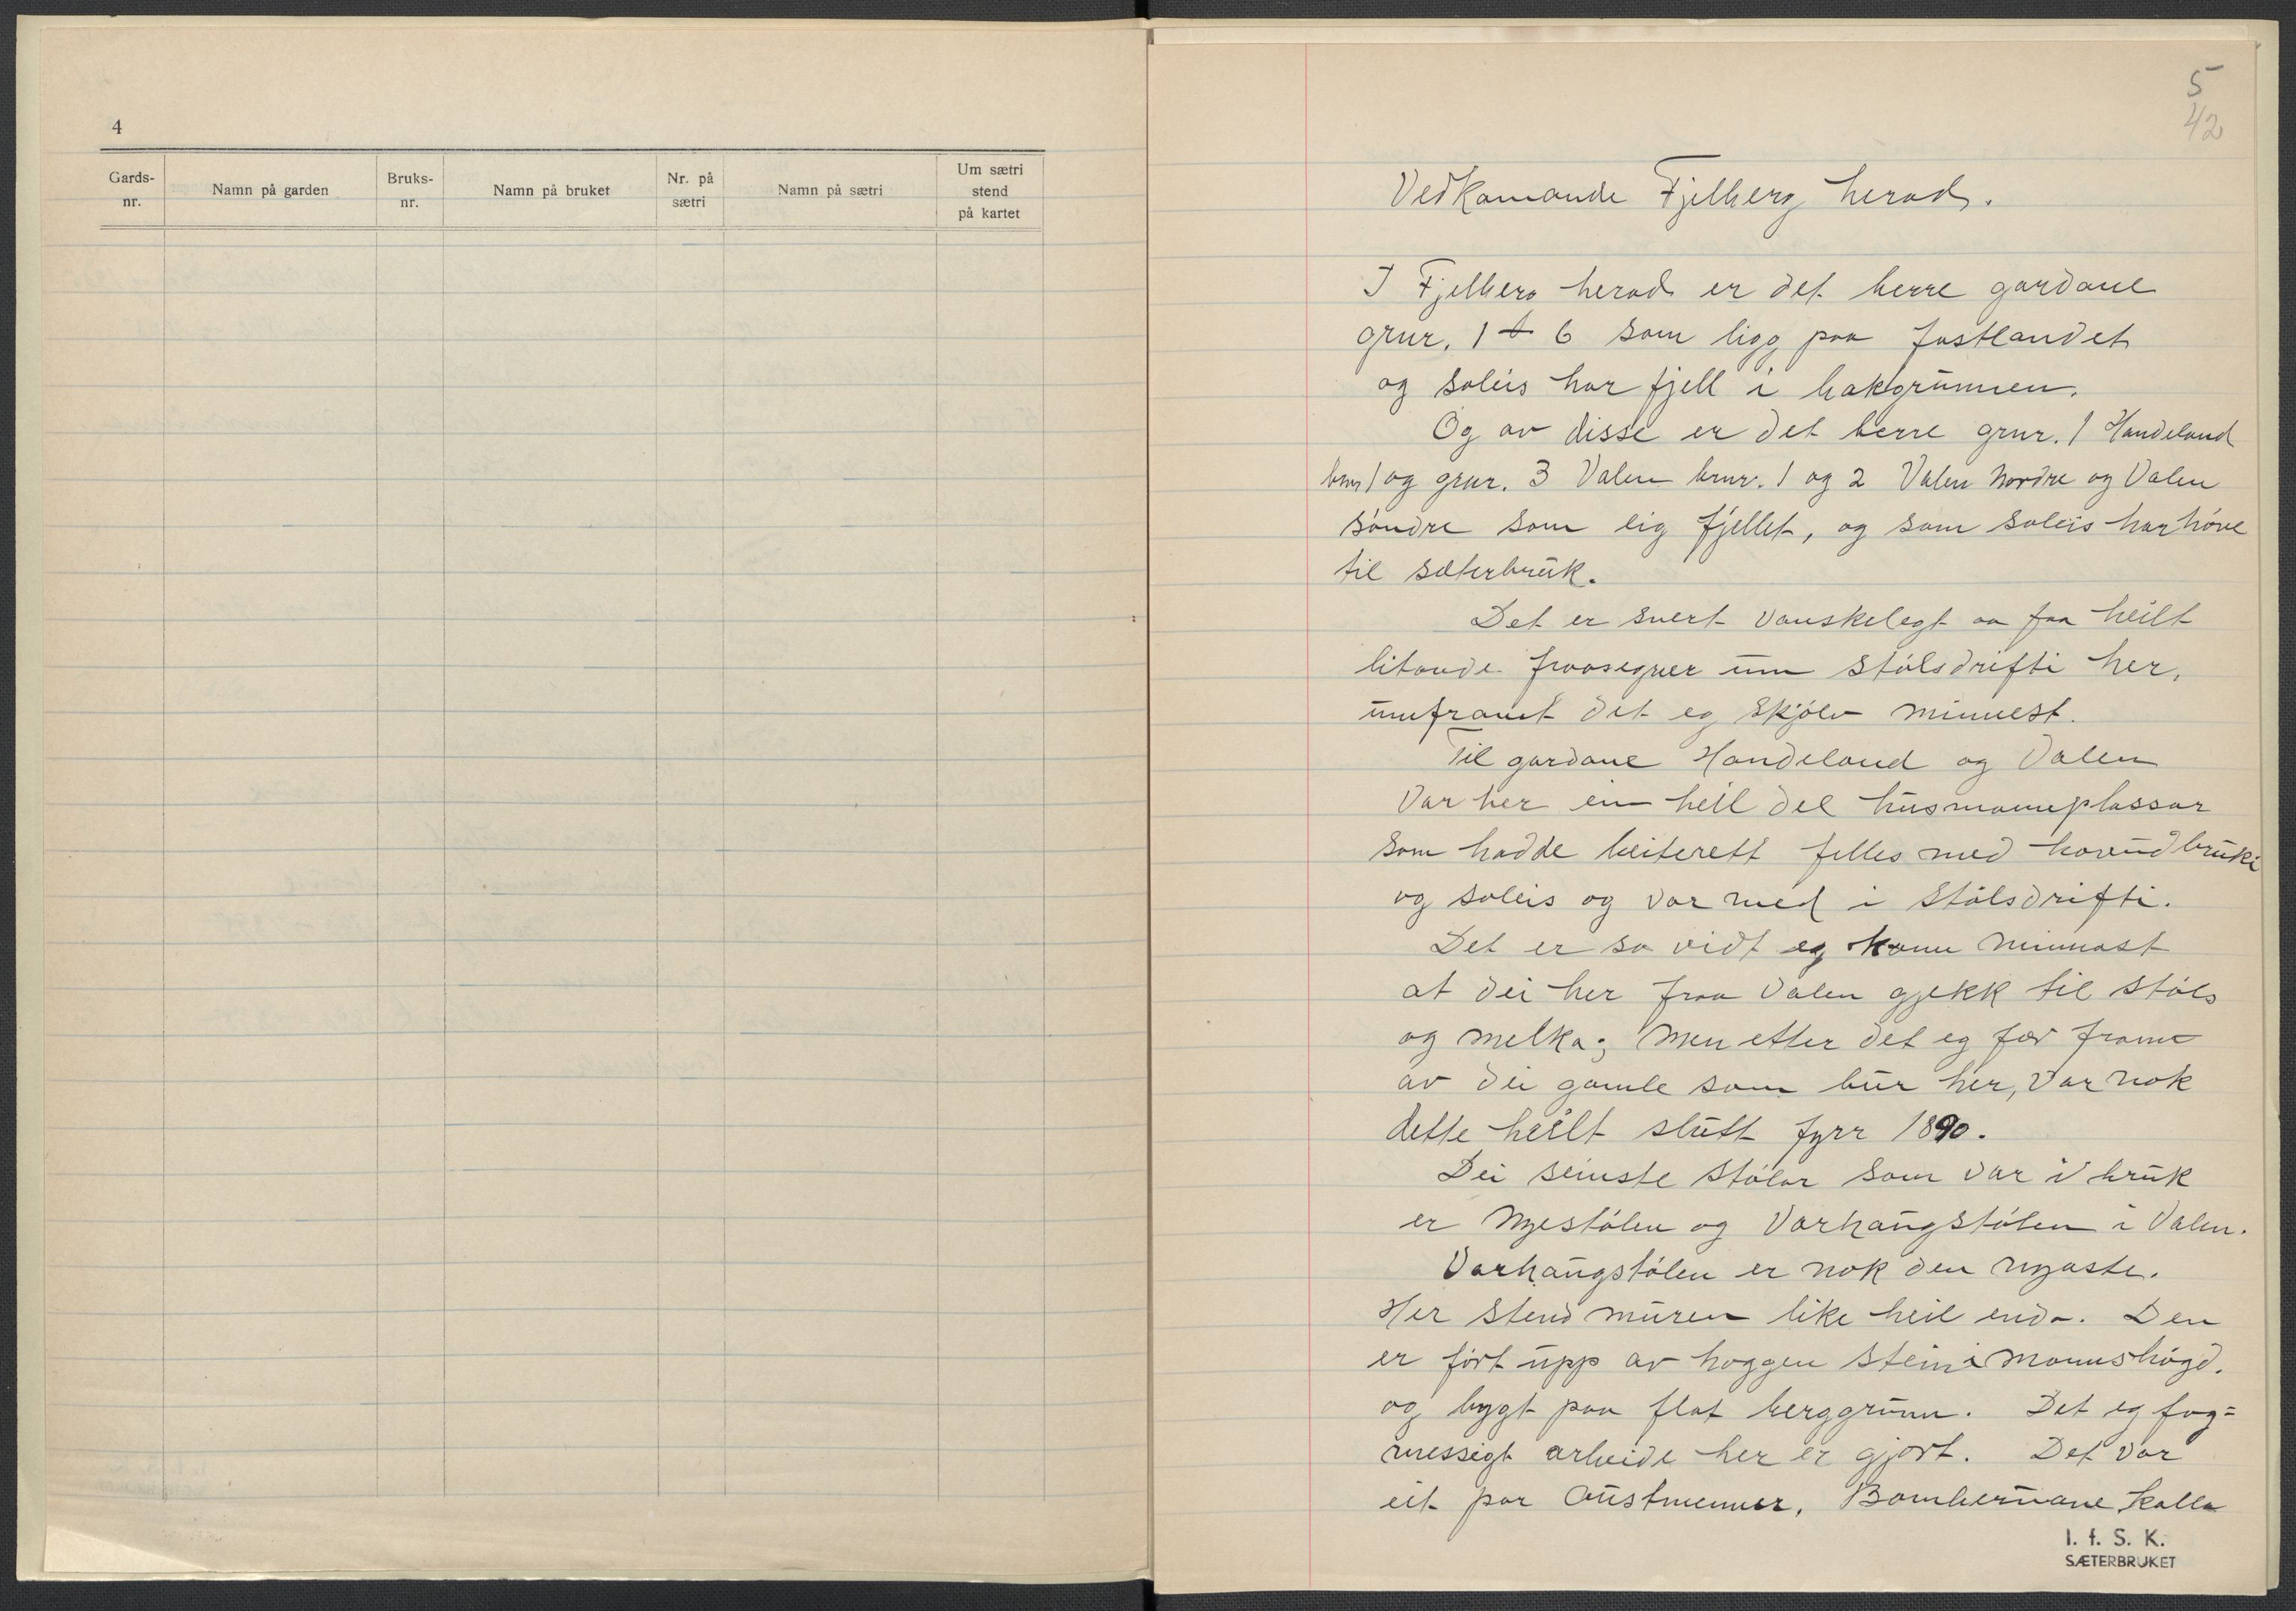 4
Gards-
nr.
Namn på garden
Bruks-
nr.
Namn på bruket
Nr. på
sætri
Namn på sætri
Um sætri
stend
på kartet
5
42
Vedkomande Fjelberg herad.
I Fjelberg herad er det berre gardane
gnur. 1 t 6 som ligg paa fastlandet
og soleis har fjell i bakgrunnen.
Og av disse er det berre gnur. 1 Handeland
bnr 1 og gnur. 3 Valen bnur. 1 og 2 Valen Nordre og Valen
søndre som eig fjellet, og som soleis har høve
til sæterbruk.
Det er svert vanskelegt aa faa heilt
litande fraasegner um stølsdrifti her,
umframt det eg skjølv minnest.
Til gardane Handeland og Valen
var her ein heil del husmannsplassar
som hadde beiterett felles med hovudbruki
og soleis og var med i stølsdrifti.
Det er so vidt eg kann minnast
at dei her fraa Valen gjekk til støls
og melka; men etter det eg fær fram
av dei gamle som bur her, var nok
dette heilt slutt fyrr 1890.
Dei seinste stølar som var i bruk
er Nyestølen og Varhaugstølen i Valen.
Varhaugstølen er nok den nyaste.
Her stend muren like heil enda. Den
er ført upp av hoggen stein i mannshøgd.
og bygt paa flat berggrunn. Det eg fag=
messigt arbeide her er gjort. Det var
eit par Austmenner, Bombernane kalla
I. f. S. K.
SÆTERBRUKET